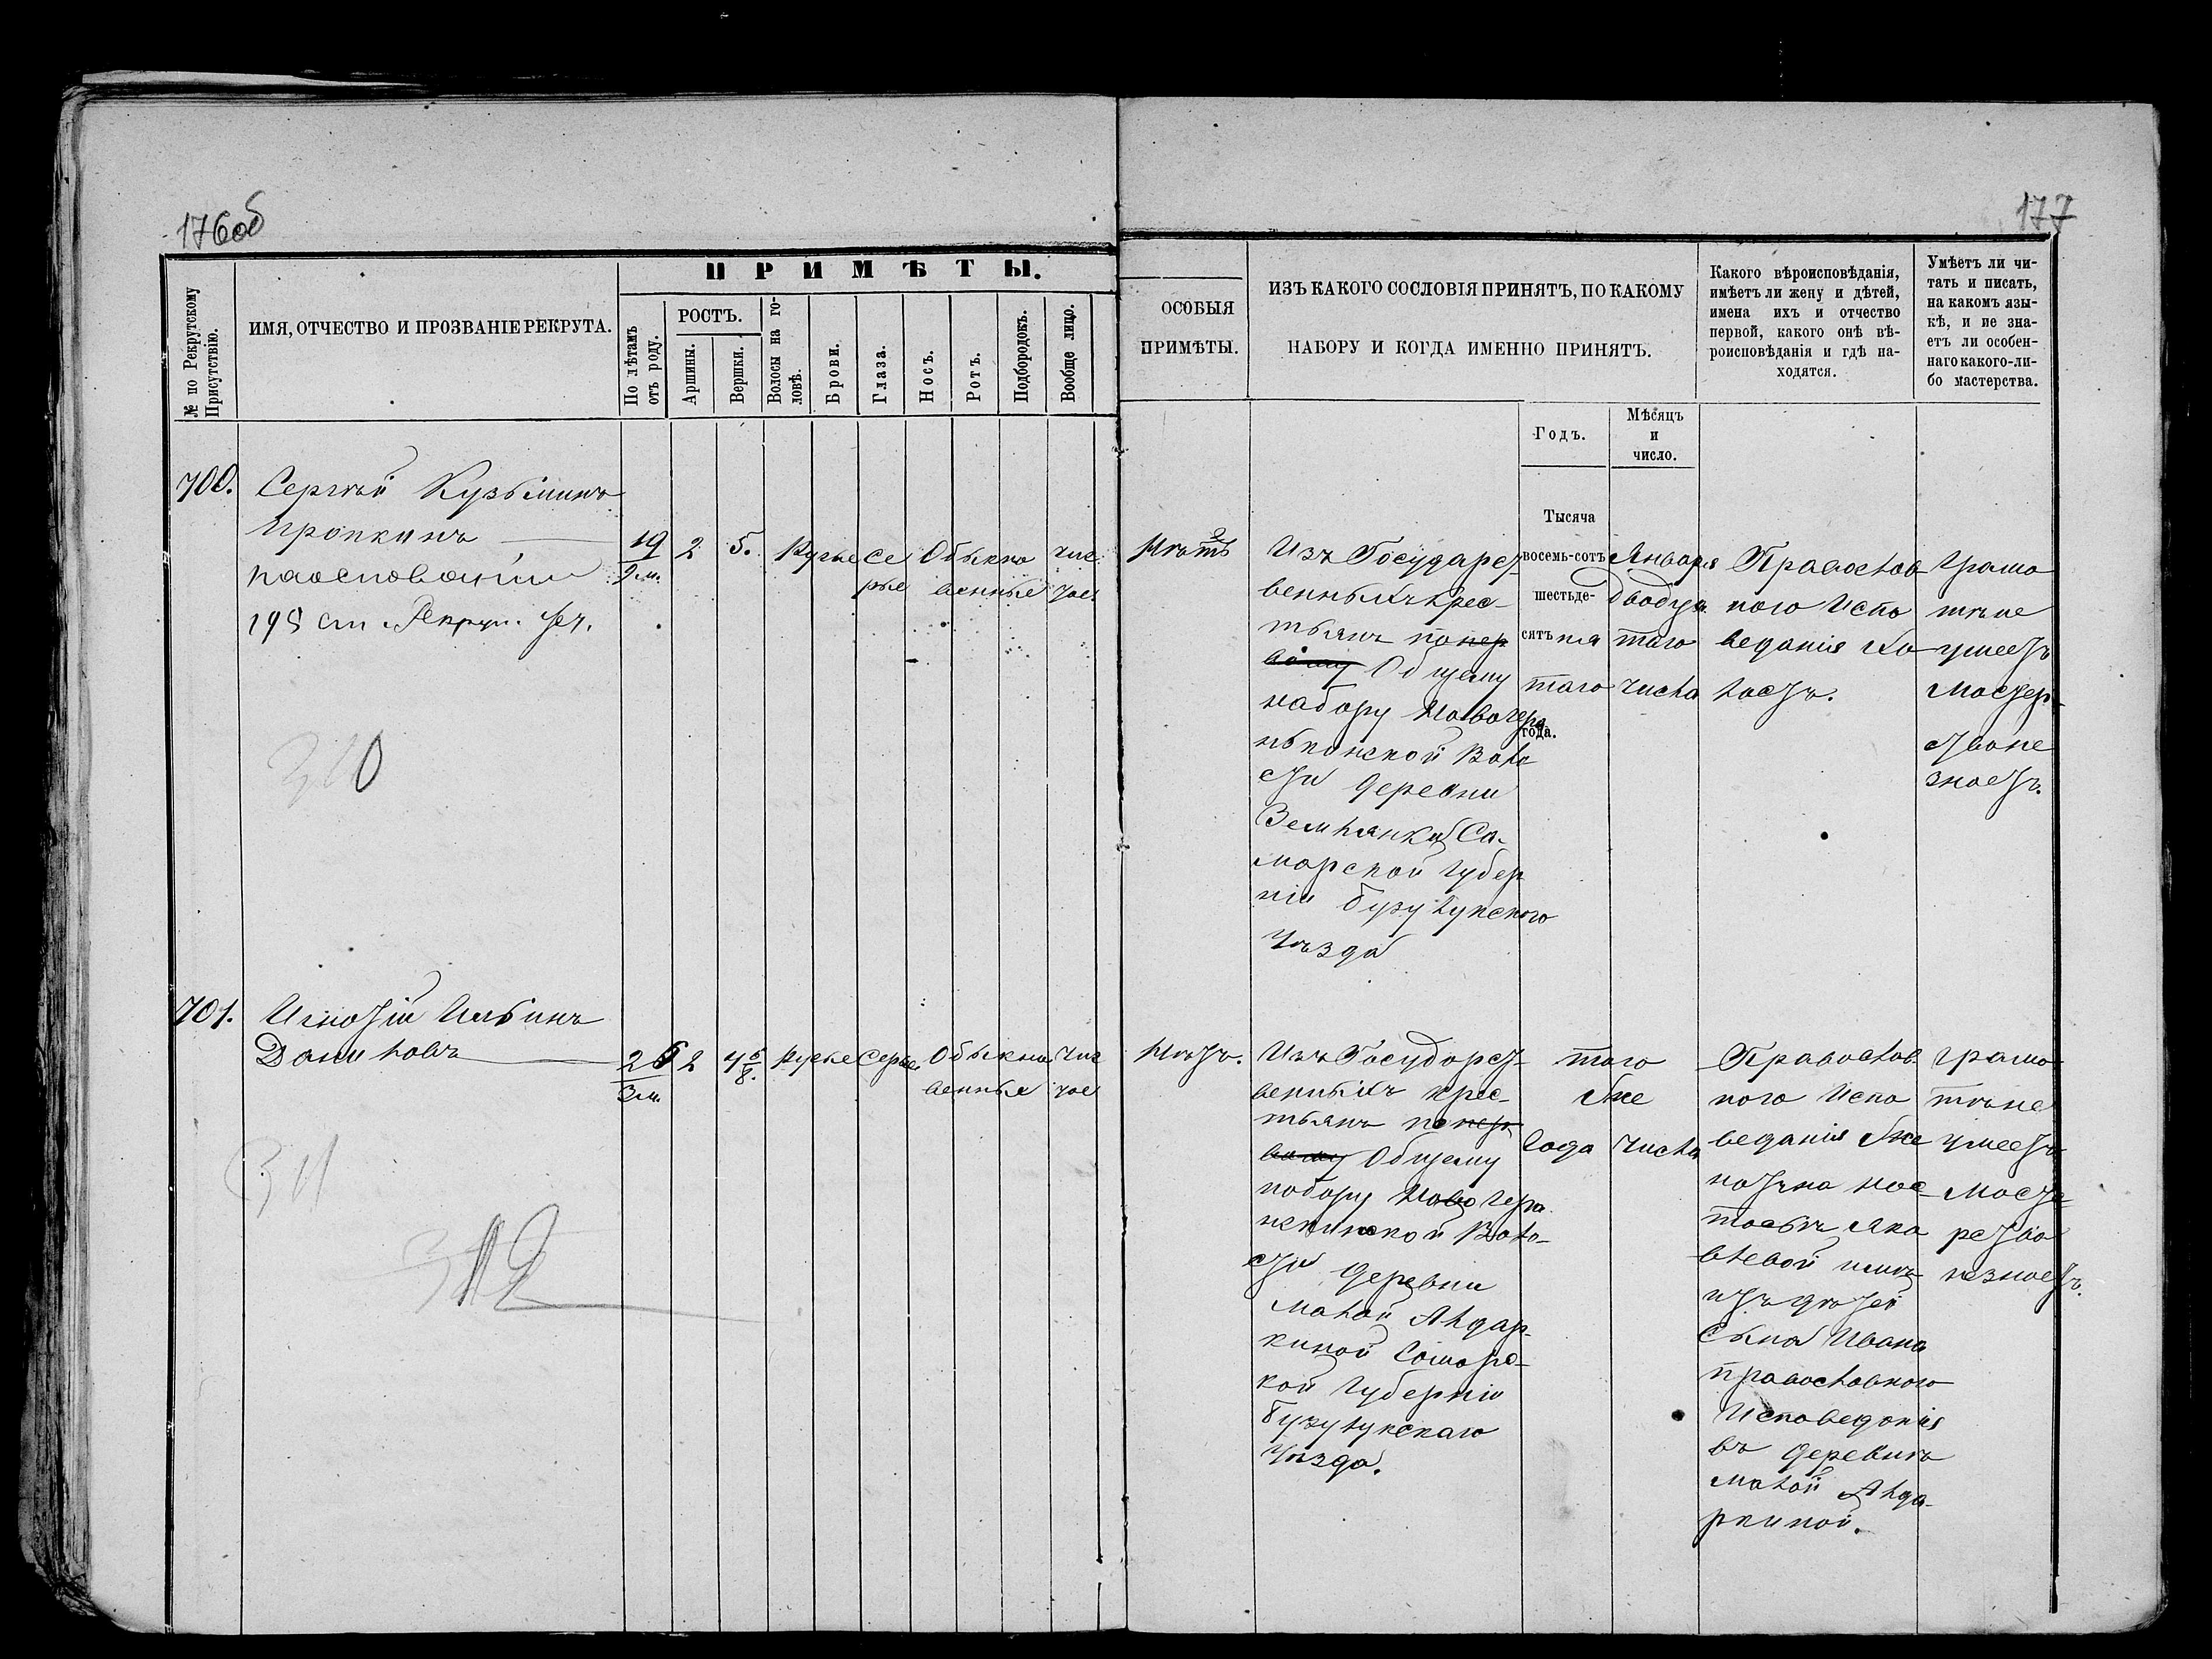 176об
177
ПРИМѢТЫ.
№ по Рекрутскому
Присутствію.
ИМЯ, ОТЧЕСТВО И ПРОЗВАНІЕ РЕКРУТА.
По лѣтамъ
отъ роду.
РОСТЪ.
Аршины.
Вершки.
Волосы на го-
ловѣ.
Брови.
Глаза.
Носъ.
Ротъ.
Подбородокъ.
Вообще лицо.
ОСОБЫЯ
ПРИМѢТЫ.
ИЗЪ КАКОГО СОСЛОВІЯ ПРИНЯТЪ, ПО КАКОМУ
НАБОРУ И КОГДА ИМЕННО ПРИНЯТЪ.
Какого вѣроисповѣданія,
имѣетъ ли жену и дѣтей,
имена ихъ и отчество
первой, какого онѣ вѣ-
роисповѣданія и гдѣ на-
ходятся.
Умѣетъ ли чи-
тать и писать,
на какомъ язы-
кѣ, и не зна-
етъ ли особен-
наго какого-ли-
бо мастерства.
Годъ.
Мѣсяцъ
и
число.
700.
Сергѣй Кузьминъ
Пропкинъ
на основаніи
195 ст. Рекрут. Уст.
19
9 м.
2
5.
Русые
Се
рые
Обыкно
венные
чис
тое
Нѣтъ
Изъ Государст-
венныхъ крес-
тьянъ попер
вому Общему
набору
нькинской Воло
сти деревни
Землянки Са-
марской Губер
ніи Бузулукского
Уѣзда
Тысяча
восемь-сотъ
шестьде-
сятъ пя
таго
года.
Января
двадца
таго
числа
Православ
ного Испо
веданія Хо
лостъ.
Грамо
тѣ не
умеетъ
Мастер-
ства не
знаетъ.
310
701.
Игнатій Ильинъ
Даниловъ
26
3 м.
2
4 5/8.
Русые
Серые
Обыкно
венные
Чис
тое
Нѣтъ.
Изъ Государст-
венныхъ крес-
тьянъ попер
вому Общему
набору
Воло-
сти деревни
Малой Алдар-
киной Самарс-
кой Губерніи
Бузулукскаго
Уѣзда.
того
же
Года
Числа
Православ
ного Испо
веданія же
натъ на Нас-
тасьѣ Яко
влевой имѣ
итъ дѣтей
Сына Ивана
православного
Исповеданія
въ деревнѣ
Малой Алда-
ркиной.
Грамо
тѣ не
умеетъ
Масте
рства
незнаетъ.
311
312